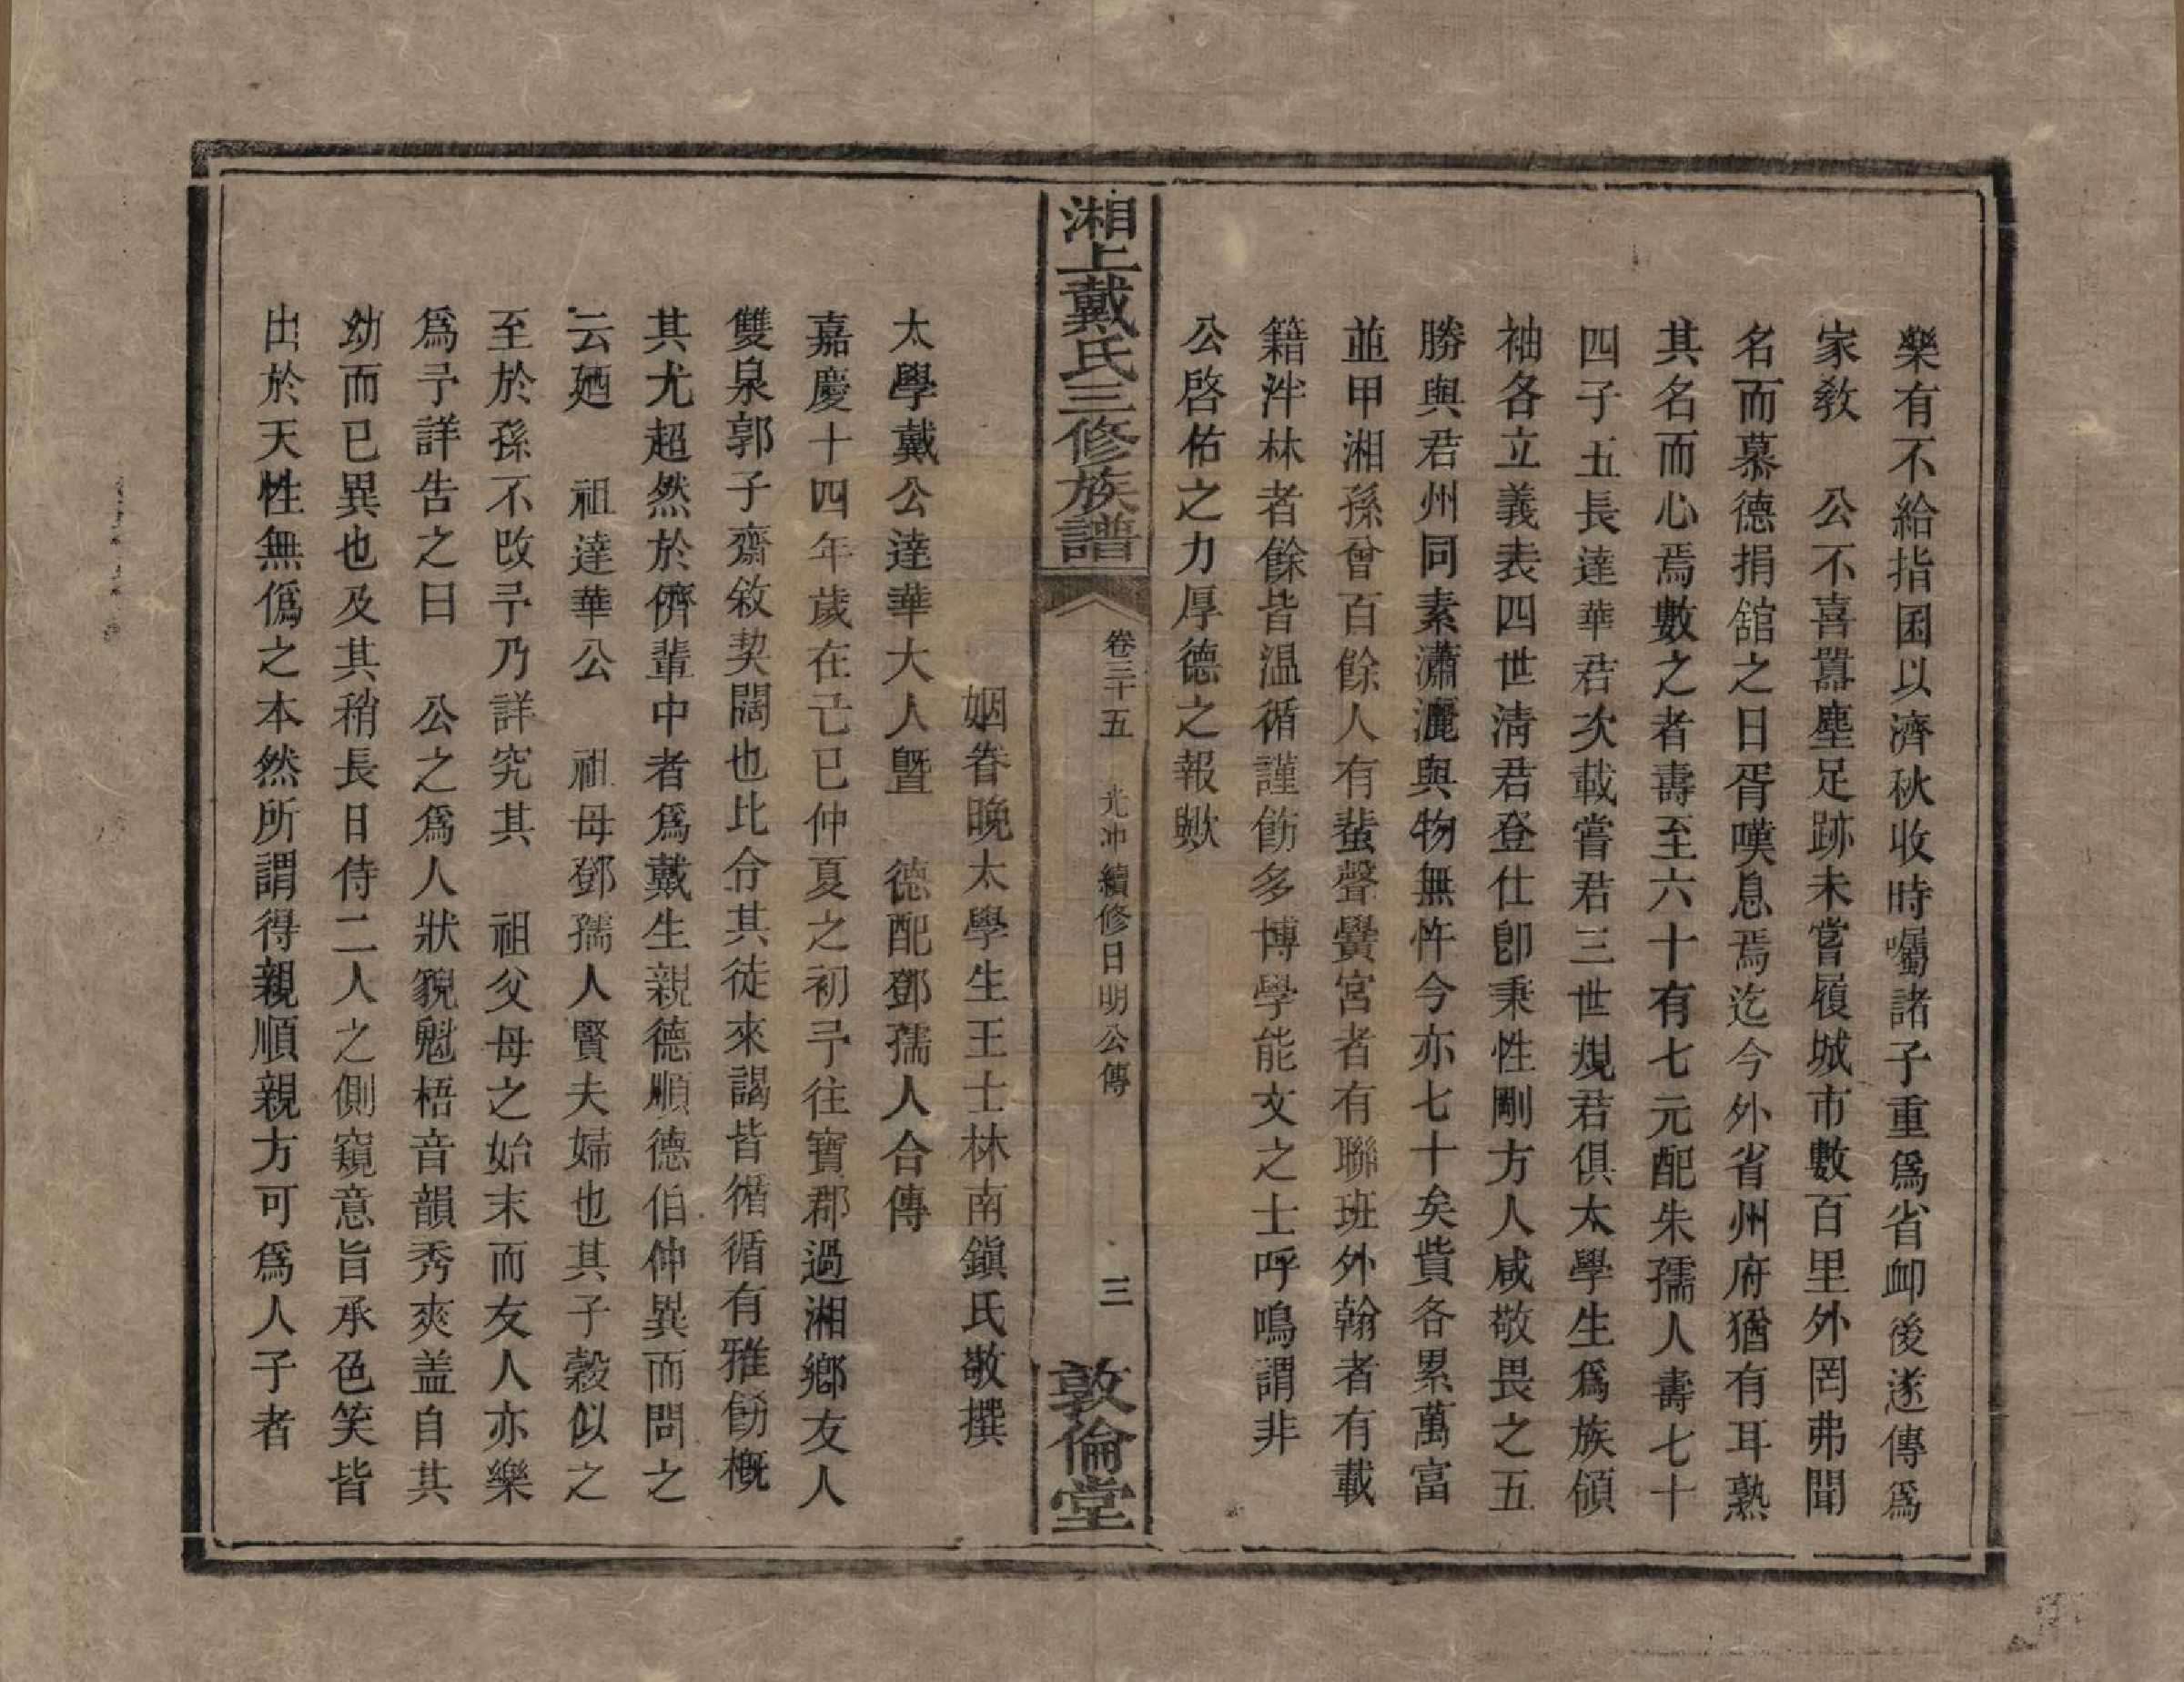 樂有不給指囷以濟秋收時囑諸子重爲省卹後遂傳爲
家敎　公不喜囂塵足跡未嘗履城市數百里外罔弗聞
名而慕德捐舘之日胥嘆息焉迄今外省州府猶有耳熟
其名而心焉數之者壽至六十有七元配朱孺人壽七十
四子五長達華君次載嘗君三世規君俱太學生爲族頎
袖各立義表四世淸君登仕卽秉性剛方人咸敬畏之五
勝與君州同素瀟灑與物無忤今亦七十矣貲各累萬富
並甲湘孫曾百餘人有蜚聲黌宮者有聯班外翰者有載
籍泮林者餘皆温循謹飭多博學能文之士呼鳴謂非
公啓佑之力厚德之報歟
湘上戴氏三修族譜
卷三十五　光冲續修日明公傳　三
敦倫堂
姻眷晚太學生王士林南鎭氏敬撰
太學戴公達華大人曁　德配鄧孺人合傳
嘉慶十四年歲在己巳仲夏之初予往寶郡過湘鄉友人
雙泉郭子齋敘契闊也比合其徒來謁皆循循有雅飭槪
其尤超然於儕輩中者爲戴生親德順德伯仲異而問之
云廼　祖達華公　祖母鄧孺人賢夫婦也其子穀似之
至於孫不改予乃詳究其　祖父母之始末而友人亦樂
爲予詳告之曰　公之爲人狀貌魁梧音韻秀爽盖自其
幼而已異也及其稍長日侍二人之側窺意旨承色笑皆
出於天性無僞之本然所謂得親順親方可爲人子者